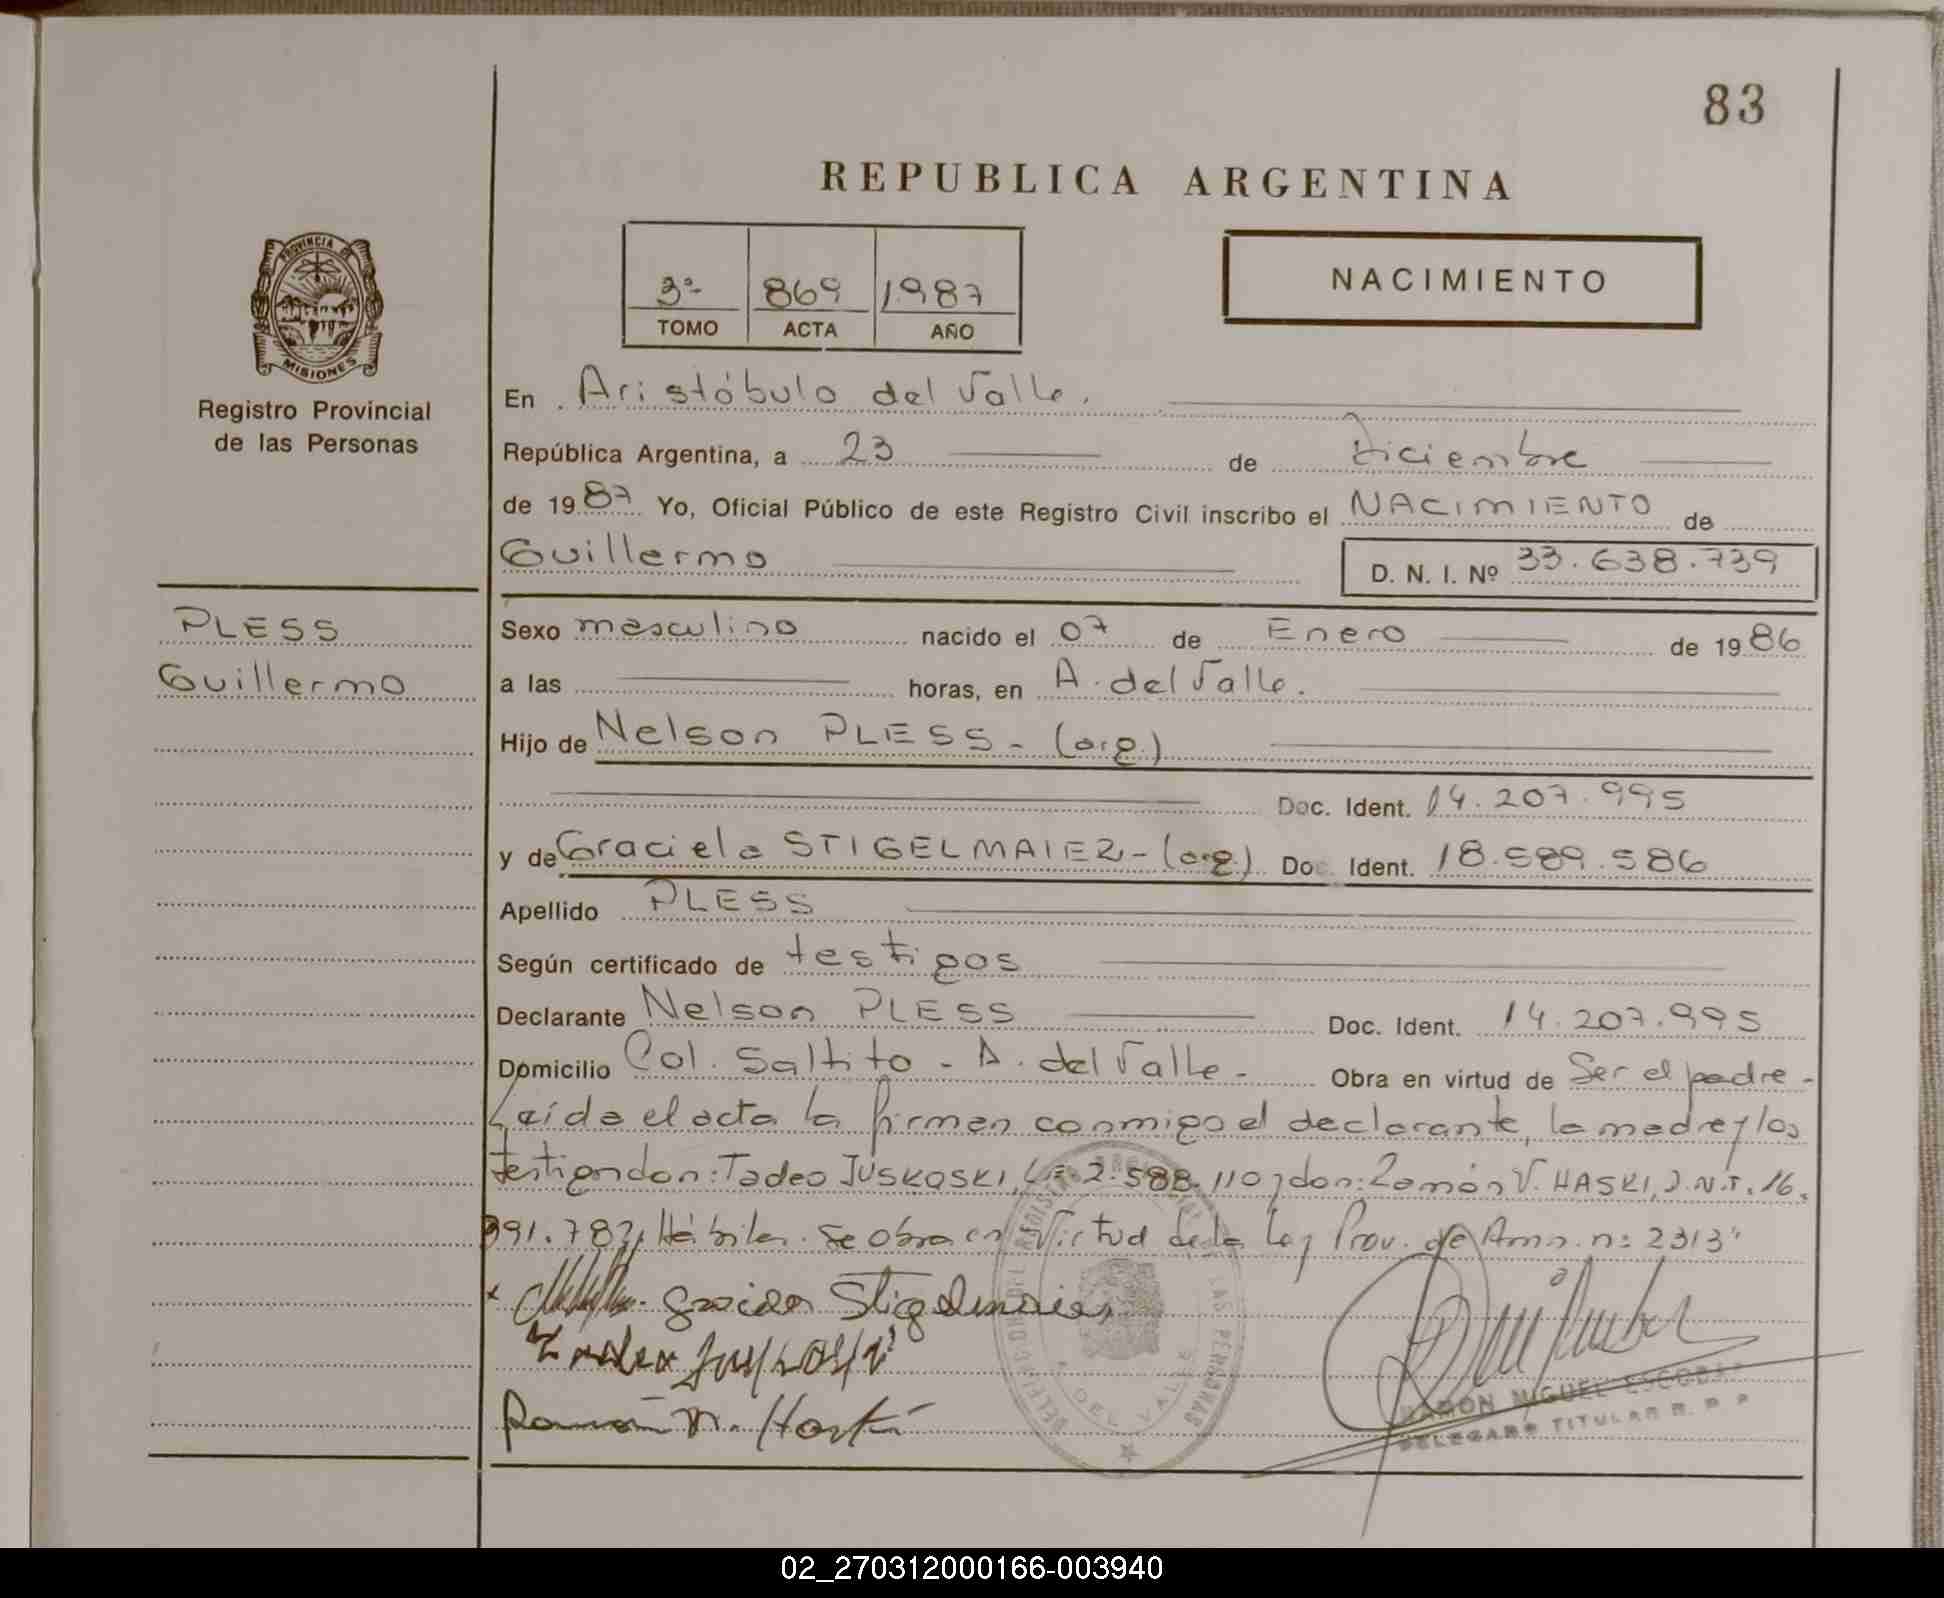 83
REPUBLICA ARGENTINA
PROVINCIA DE
MISIONES
Registro Provincial
de las Personas
3º 869 1.987
TOMO ACTA AÑO
NACIMIENTO
En Aristóbulo del Valle.
República Argentina, a 23 de Diciembre
de 1987 Yo, Oficial Público de este Registro Civil inscribo el NACIMIENTO de
Guillermo D. N. I. Nº 33.638.739
PLESS
Guillermo
Sexo masculino nacido el 07 de Enero de 1986
a las horas, en A. del Valle.
Hijo de Nelson PLESS - (arg.)
Doc. Ident. 14.207.995
y de Graciela STIGELMAIER - (arg.) Doc. Ident. 18.589.586
Apellido PLESS
Según certificado de testigos
Declarante Nelson PLESS Doc. Ident. 14.207.995
Domicilio Col. Saltito - A. del Valle - Obra en virtud de Ser el padre -
Leída el acta la firman conmigo el declarante, la madre y los
testigos don: Tadeo JUSKOSKI, L.E. 2.588.110 y don: Ramón V. HASKI, D.N.I. 16.
991.782, Hábiles. Se obra en Virtud de la Ley Prov. de Amn. nº 2313"
Graciela Stigelmaier
Tadeo Juskoski
Ramón Haski
DELEGACION DEL REGISTRO PROVINCIAL DE LAS PERSONAS
A. DEL VALLE
RAMON MIGUEL ESCOBAR
DELEGADO TITULAR R. P. P.
02_270312000166-003940